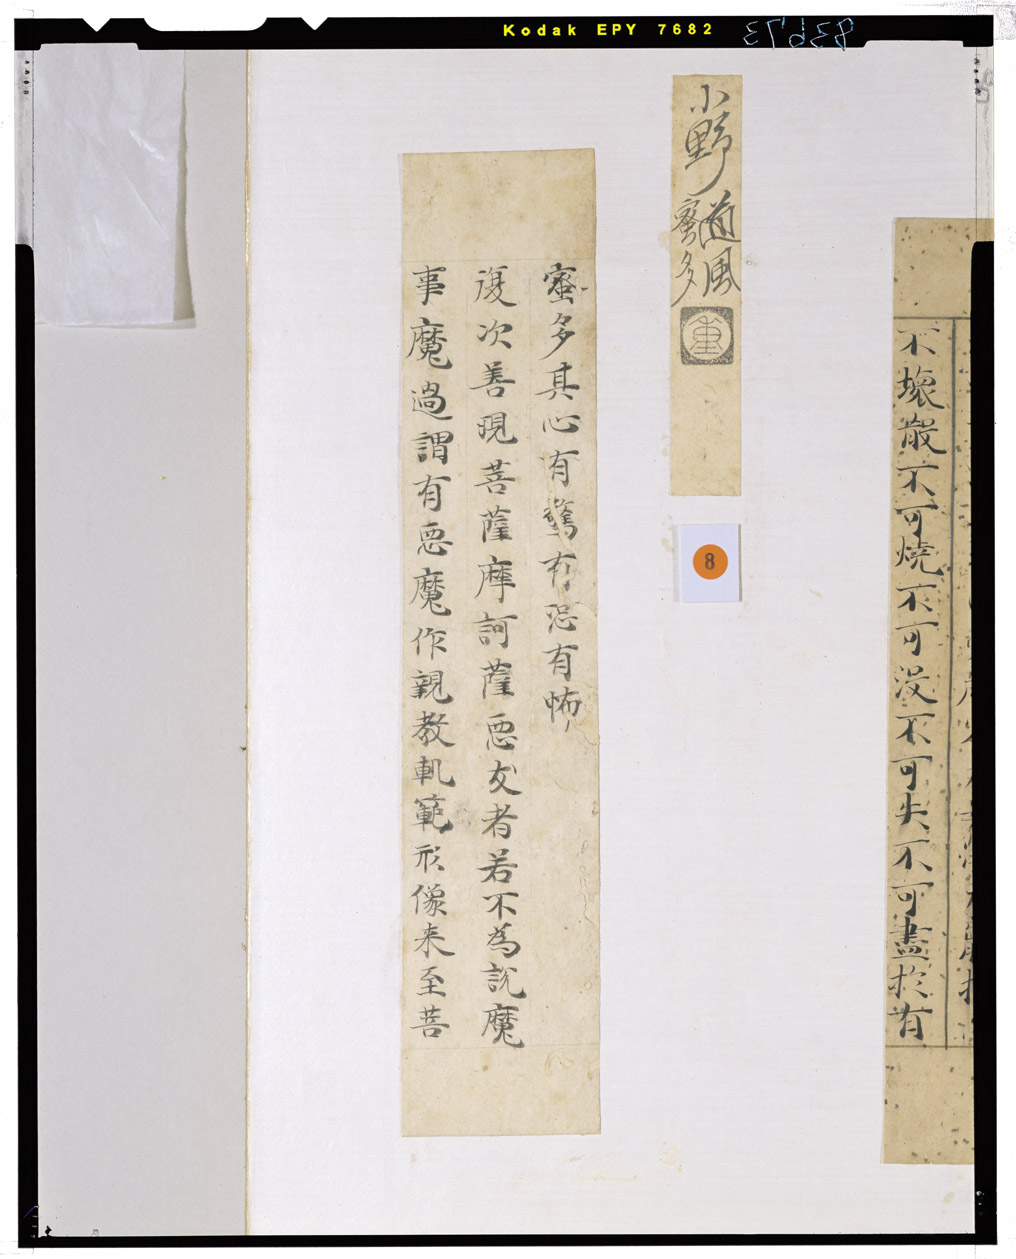 Kodak EPY 7682
不壞散不可燒不可沒不可失不可盡於有
小野道風
蜜多
重
8
蜜多其心有驚有恐有怖
復次善現菩薩摩訶薩惡友者若不為說魔
事魔過謂有惡魔作親教軌範形像来至菩